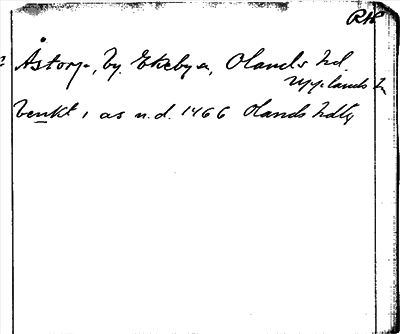 RA
Åstorp, by. Ekebya, Olands hd.
Upplands l.
benkt i as n.d. 1466 Olands hdg